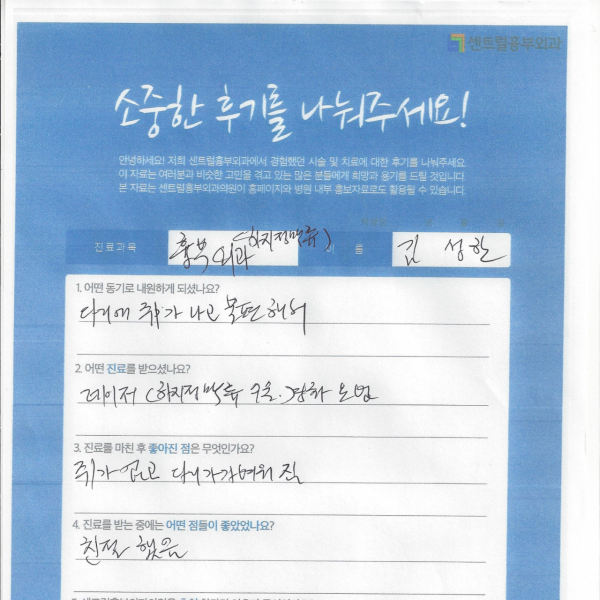 센트럴흉부외과
소중한 후기를 나눠주세요!
안녕하세요! 저희 센트럴흉부외과에서 경험했던 시술 및 치료에 대한 후기를 나눠주세요.
이 자료는 여러분과 비슷한 고민을 겪고 있는 많은 분들에게 희망과 용기를 드릴 것입니다.
본 자료는 센트럴흉부외과의원이 홈페이지와 병원 내부 홍보자료로도 활용될 수 있습니다.
진료과목 흉부외과 (하지정맥류) 이 름 김 성한
1. 어떤 동기로 내원하게 되셨나요?
다리에 쥐가 나고 불편해서
2. 어떤 진료를 받으셨나요?
레이저 (하지정맥류 수술.) 경화 요법
3. 진료를 마친 후 좋아진 점은 무엇인가요?
쥐가 없고 다리가 가벼워 짐
4. 진료를 받는 중에는 어떤 점들이 좋았었나요?
친절 했음